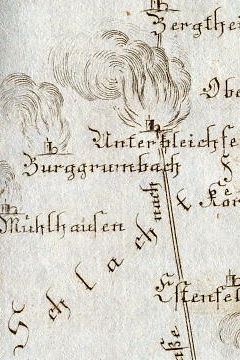 Bergthe
Obe
Unterpleichfe
Burggrumbach
Kor
Mühlhausen
nach
Schlach
Estenfel
aße